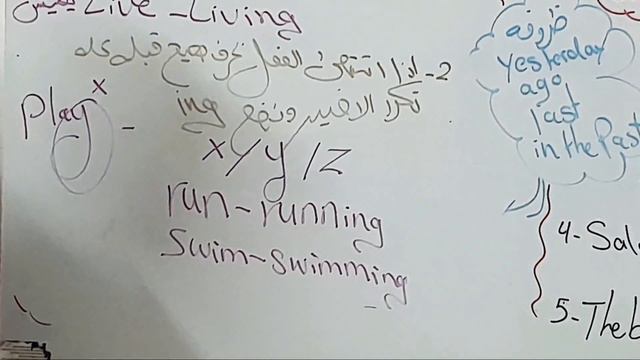 يعيش Live - Living
2- إذا انتهى الفعل بحرف صحيح قبله علة
نكرر الاخير ونضع ing
Play x -
x / y / z
run - running
swim - swimming
ظروفه
yesterday
ago
last
in the Past
4- Sal
5- The b